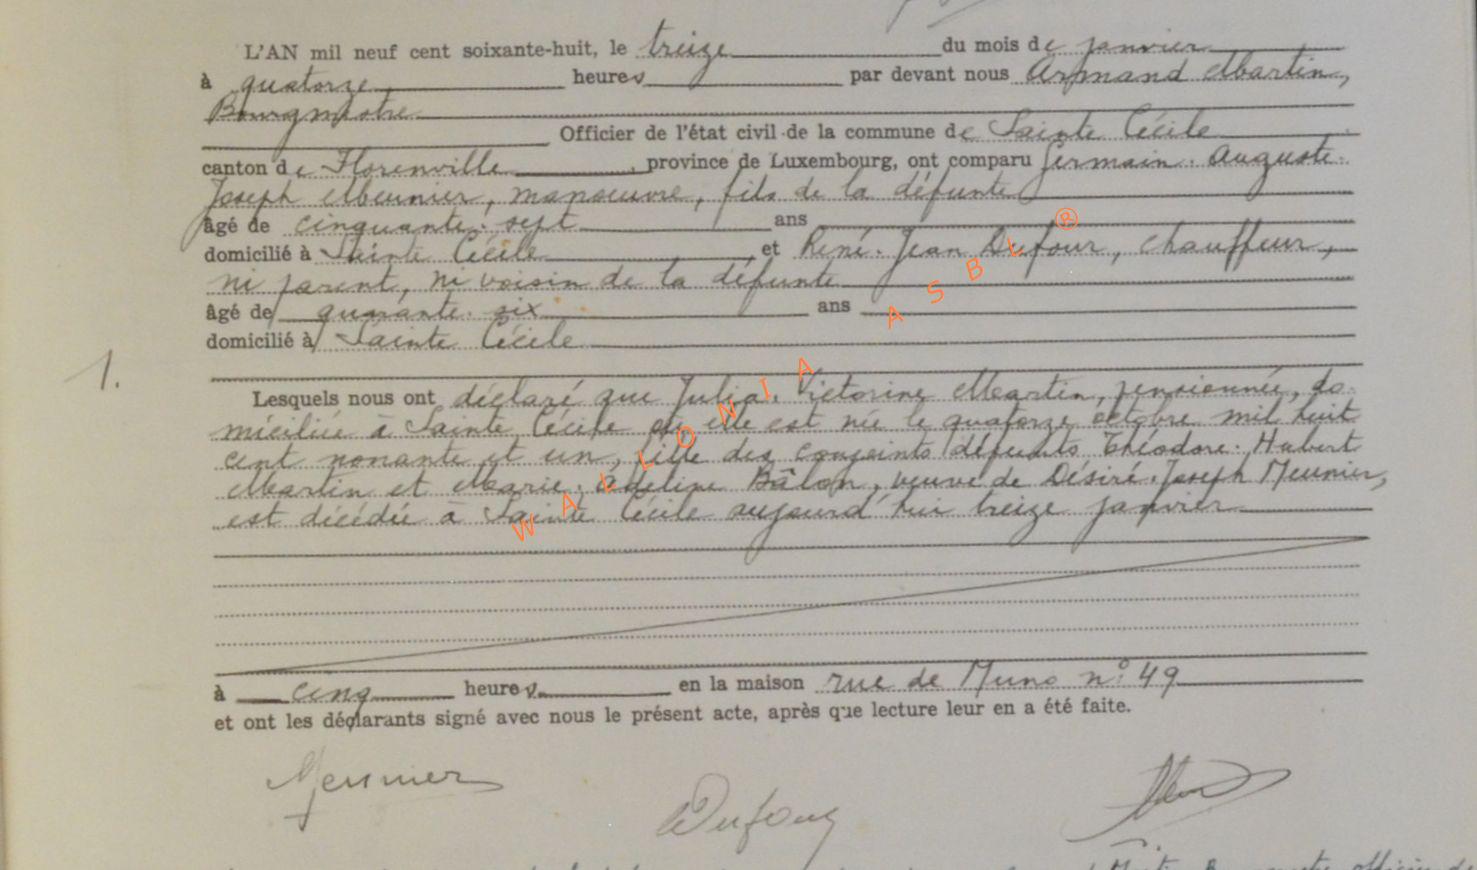 L'AN mil neuf cent soixante-huit, le treize du mois de janvier
à quatorze heures par devant nous Armand Martin,
Bourgmestre
Officier de l'état civil de la commune de Sainte Cécile
canton de Florenville, province de Luxembourg, ont comparu Germain. Auguste.
Joseph Meunier, manoeuvre, fils de la défunte
âgé de cinquante. sept ans
domicilié à Sainte Cécile, et René. Jean Dufour, chauffeur,
ni parent, ni voisin de la défunte
âgé de quarante. six ans
domicilié à Sainte Cécile
1.
Lesquels nous ont déclaré que Julia. Victorine Martin, pensionnée, do
miciliée à Sainte Cécile où elle est née le quatorze octobre mil huit
cent nonante et un, fille des conjoints défunts Théodore. Hubert
Martin et Marie. Adeline Bâlon, veuve de Désiré. Joseph Meunier,
est décédée à Sainte Cécile aujourd'hui treize janvier
à cinq heures en la maison rue de Muno n° 49
et ont les déclarants signé avec nous le présent acte, après que lecture leur en a été faite.
Meunier
Dufour
WALLONIA ASBL ®